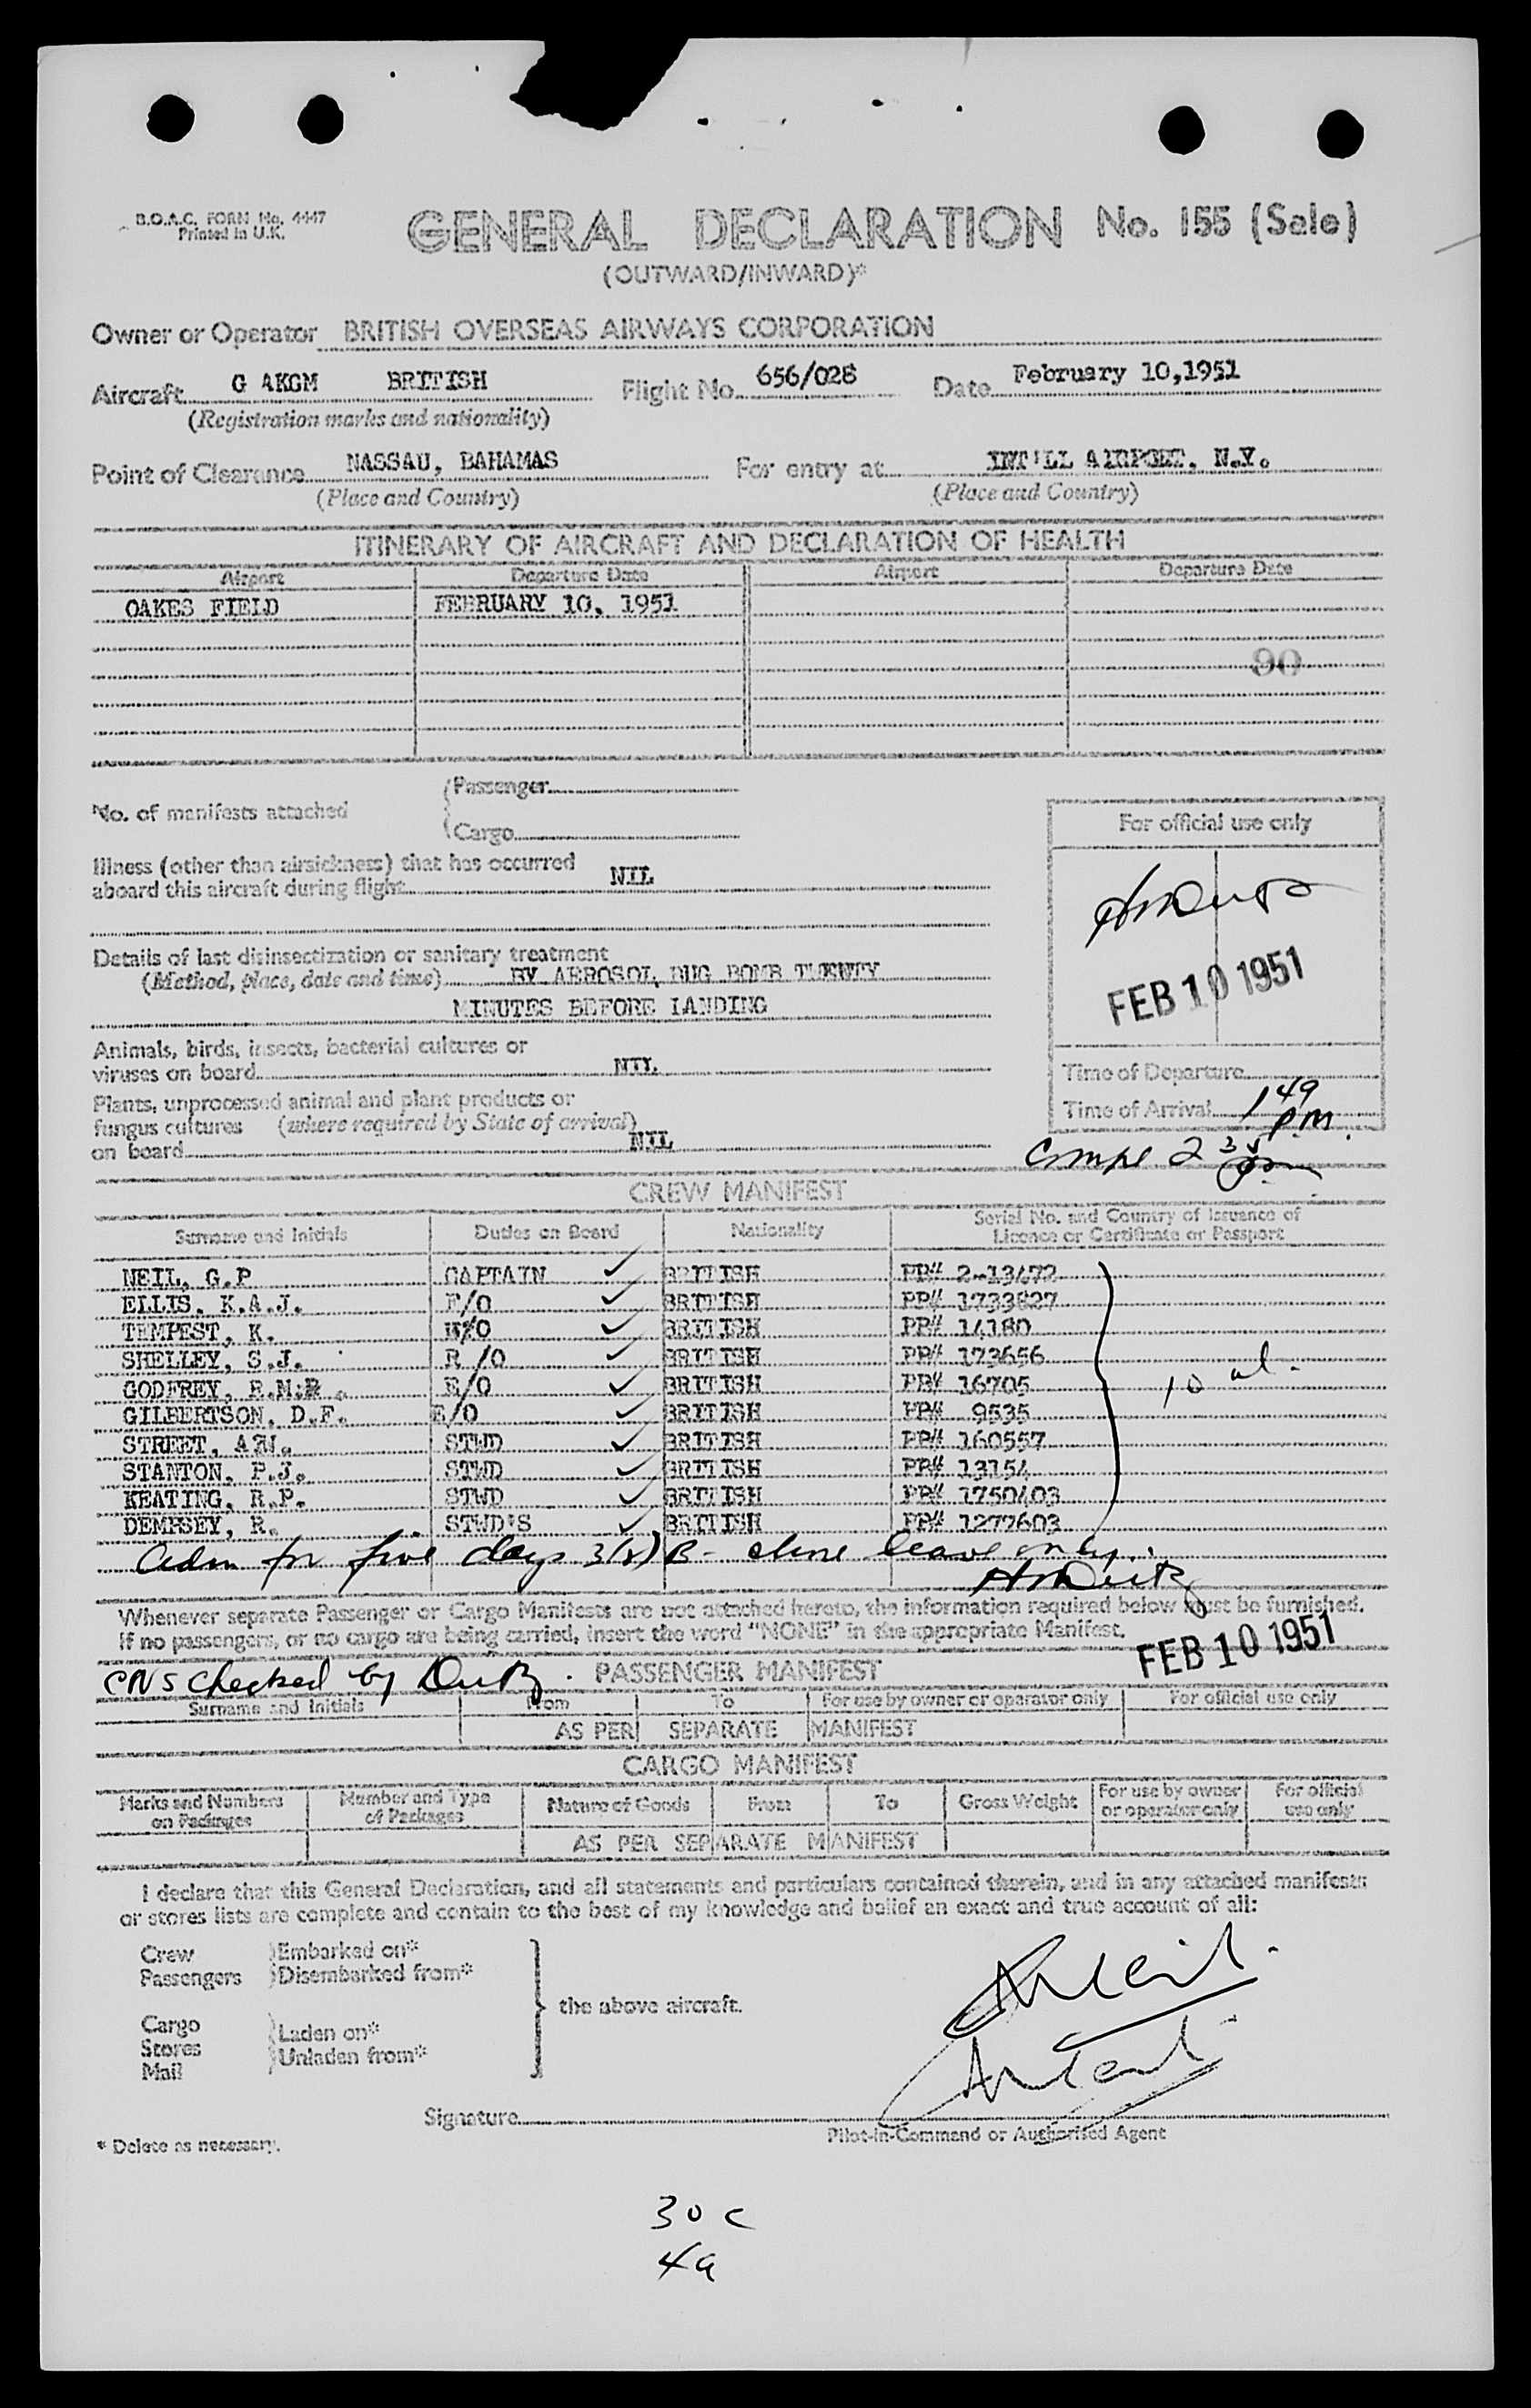 B.O.A.C. FORM No. 4447
Printed in U.K.
GENERAL DECLARATION No. 155 (Sale)
(OUTWARD/INWARD)*
Owner or Operator BRITISH OVERSEAS AIRWAYS CORPORATION
Aircraft G AKGM BRITISH Flight No. 656/028 Date February 10,1951
(Registration marks and nationality)
Point of Clearance NASSAU, BAHAMAS For entry at INT'LL AIRPORT, N.Y.
(Place and Country) (Place and Country)
ITINERARY OF AIRCRAFT AND DECLARATION OF HEALTH
Airport Departure Date Airport Departure Date
OAKES FIELD FEBRUARY 10, 1951
90
No. of manifests attached
Passenger
Cargo
For official use only
Illness (other than airsickness) that has occurred
aboard this aircraft during flight NIL
Details of last disinsectization or sanitary treatment
(Method, place, date and time) BY AEROSOL BUG BOMB TWENTY
MINUTES BEFORE LANDING
FEB 10 1951
Animals, birds, insects, bacterial cultures or
viruses on board NIL
Time of Departure
Plants, unprocessed animal and plant products or
fungus cultures (where required by State of arrival)
on board NIL
Time of Arrival 1 49 P.M.
Compl 2 35
CREW MANIFEST
Surname and Initials Duties on Board Nationality Serial No. and Country of Issuance of
Licence or Certificate or Passport
NEIL, G.P CAPTAIN ✓ BRITISH PP# 2-13672
ELLIS, K.A.J. F/O ✓ BRITISH PP# 1733827
TEMPEST, K. N/O ✓ BRITISH PP# 14180
SHELLEY, S.J. R /O ✓ BRITISH PP# 173656
GODFREY, R.M.R. E/O ✓ BRITISH PP# 16705
10 al.
GILBERTSON, D.F. E/O ✓ BRITISH PP# 9535
STREET, A.W. STWD ✓ BRITISH PP# 160557
STANTON, P.J. STWD ✓ BRITISH PP# 13154
KEATING, R.P. STWD ✓ BRITISH PP# 1750403
DEMPSEY, R. STWD'S ✓ BRITISH PP# 1277603
Adm for five days 3(5) B - shore leave only.
Whenever separate Passenger or Cargo Manifests are not attached hereto, the information required below must be furnished.
If no passengers, or no cargo are being carried, insert the word "NONE" in the appropriate Manifest.
FEB 10 1951
checked by
PASSENGER MANIFEST
Surname and Initials From To For use by owner or operator only For official use only
AS PER SEPARATE MANIFEST
CARGO MANIFEST
Marks and Numbers on Packages Number and Type of Packages Nature of Goods From To Gross Weight For use by owner or operator only For official use only
AS PER SEPARATE MANIFEST
I declare that this General Declaration, and all statements and particulars contained therein, and in any attached manifests
or stores lists are complete and contain to the best of my knowledge and belief an exact and true account of all:
Crew Embarked on*
Passengers Disembarked from*
the above aircraft.
Cargo
Stores Laden on*
Mail Unladen from*
Signature
Pilot-in-Command or Authorised Agent
* Delete as necessary.
30 c
4a